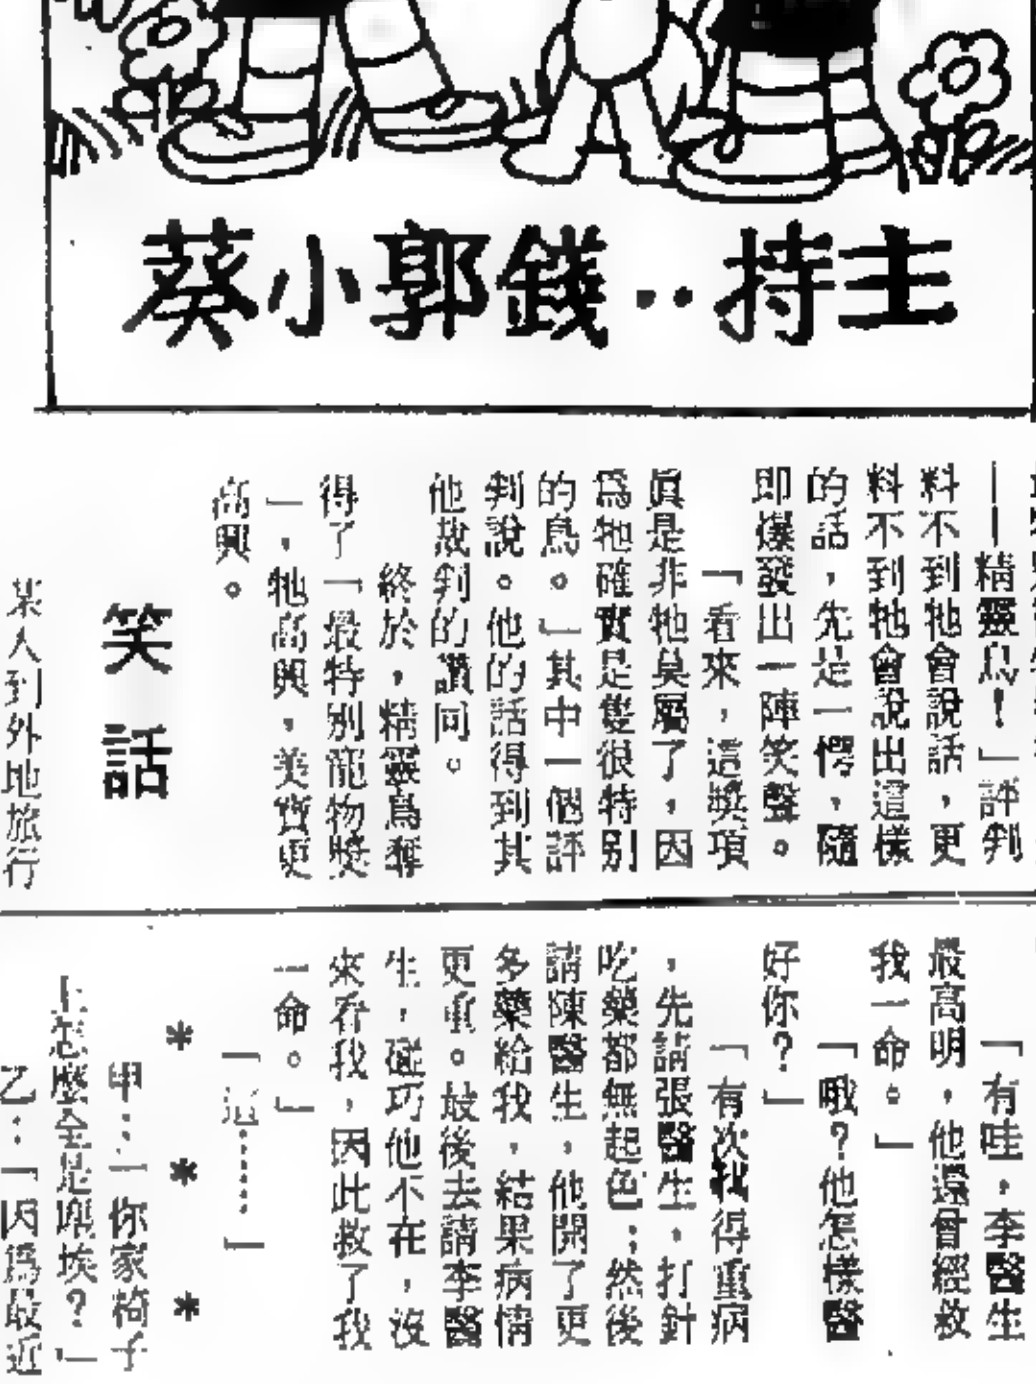 主持：錢郭小葵
——精靈鳥！」評判
料不到牠會說話，更
料不到牠會說出這樣
的話，先是一愕，隨
即爆發出一陣笑聲。
「看來，這獎項
眞是非牠莫屬了，因
爲牠確實是隻很特別
的鳥。」其中一個評
判說。他的話得到其
他裁判的讚同。
終於，精靈鳥奪
得了「最特別寵物獎
」，牠高興，美寶更
高興。
笑話
某人到外地旅行
「有哇，李醫生
最高明，他還曾經救
我一命。」
「哦？他怎樣醫
好你？」
「有次我得重病
，先請張醫生，打針
吃藥都無起色；然後
請陳醫生，他開了更
多藥給我，結果病情
更重。最後去請李醫
生，碰巧他不在，沒
來看我，因此救了我
一命。」
「這……」
＊＊＊
甲：「你家椅子
上怎麼全是塵埃？」
乙：「因爲最近